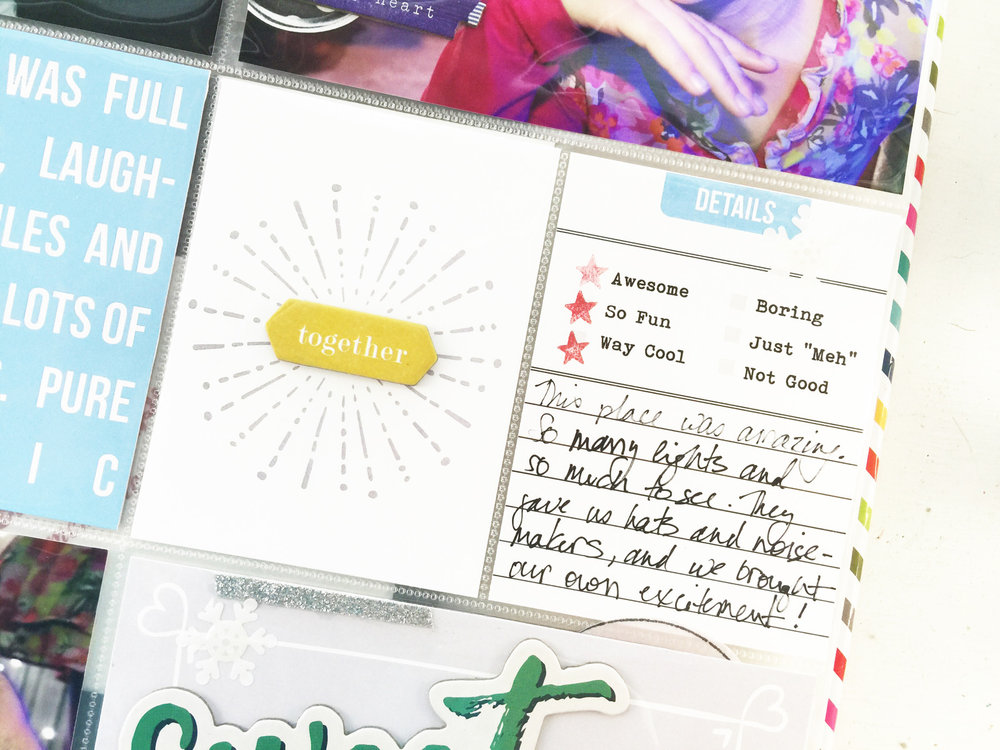 heart
WAS FULL
LAUGH-
AND
LOTS OF
PURE
I C
together
DETAILS
Awesome
So Fun
Way Cool
Boring
Just "Meh"
Not Good
This place was amazing.
So many lights and
so much to see. They
gave us hats and noise-
makers, and we brought
our own excitement!
sweet